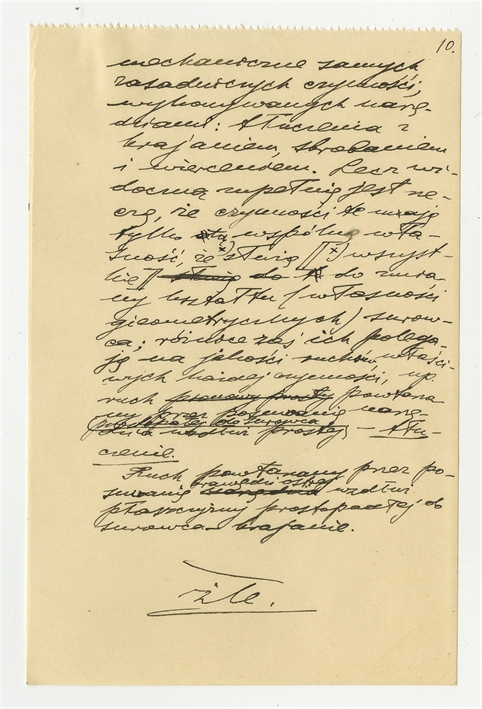 10.
mechaniczne samych
zasadniczych czynności,
wykonywanych narzę-
dziami: tłuczenia z
krajaniem, skrobaniem
i wierceniem. Lecz wi-
doczną zupełnie jest rze-
czą, że czynności te mają
tylko wspólną wła-
sność, że służą wszyst-
kie do do zmia-
ny kształtu (własności
gieometrycznych) surow-
ca; różnice zaś ich polega-
ją na jakości ruchów właści-
wych każdej czynności, np.
ruch powtarza-
ny przez posuwanie narzę-
prostopadłej do surowca
dzia wzdłuż prostej – tłu-
czenie.
Ruch powtarzany przez po-
krawędzi ostrej
suwanie narzędzia wzdłuż
płaszczyzny prostopadłej do
surowca – krajanie.
źle.